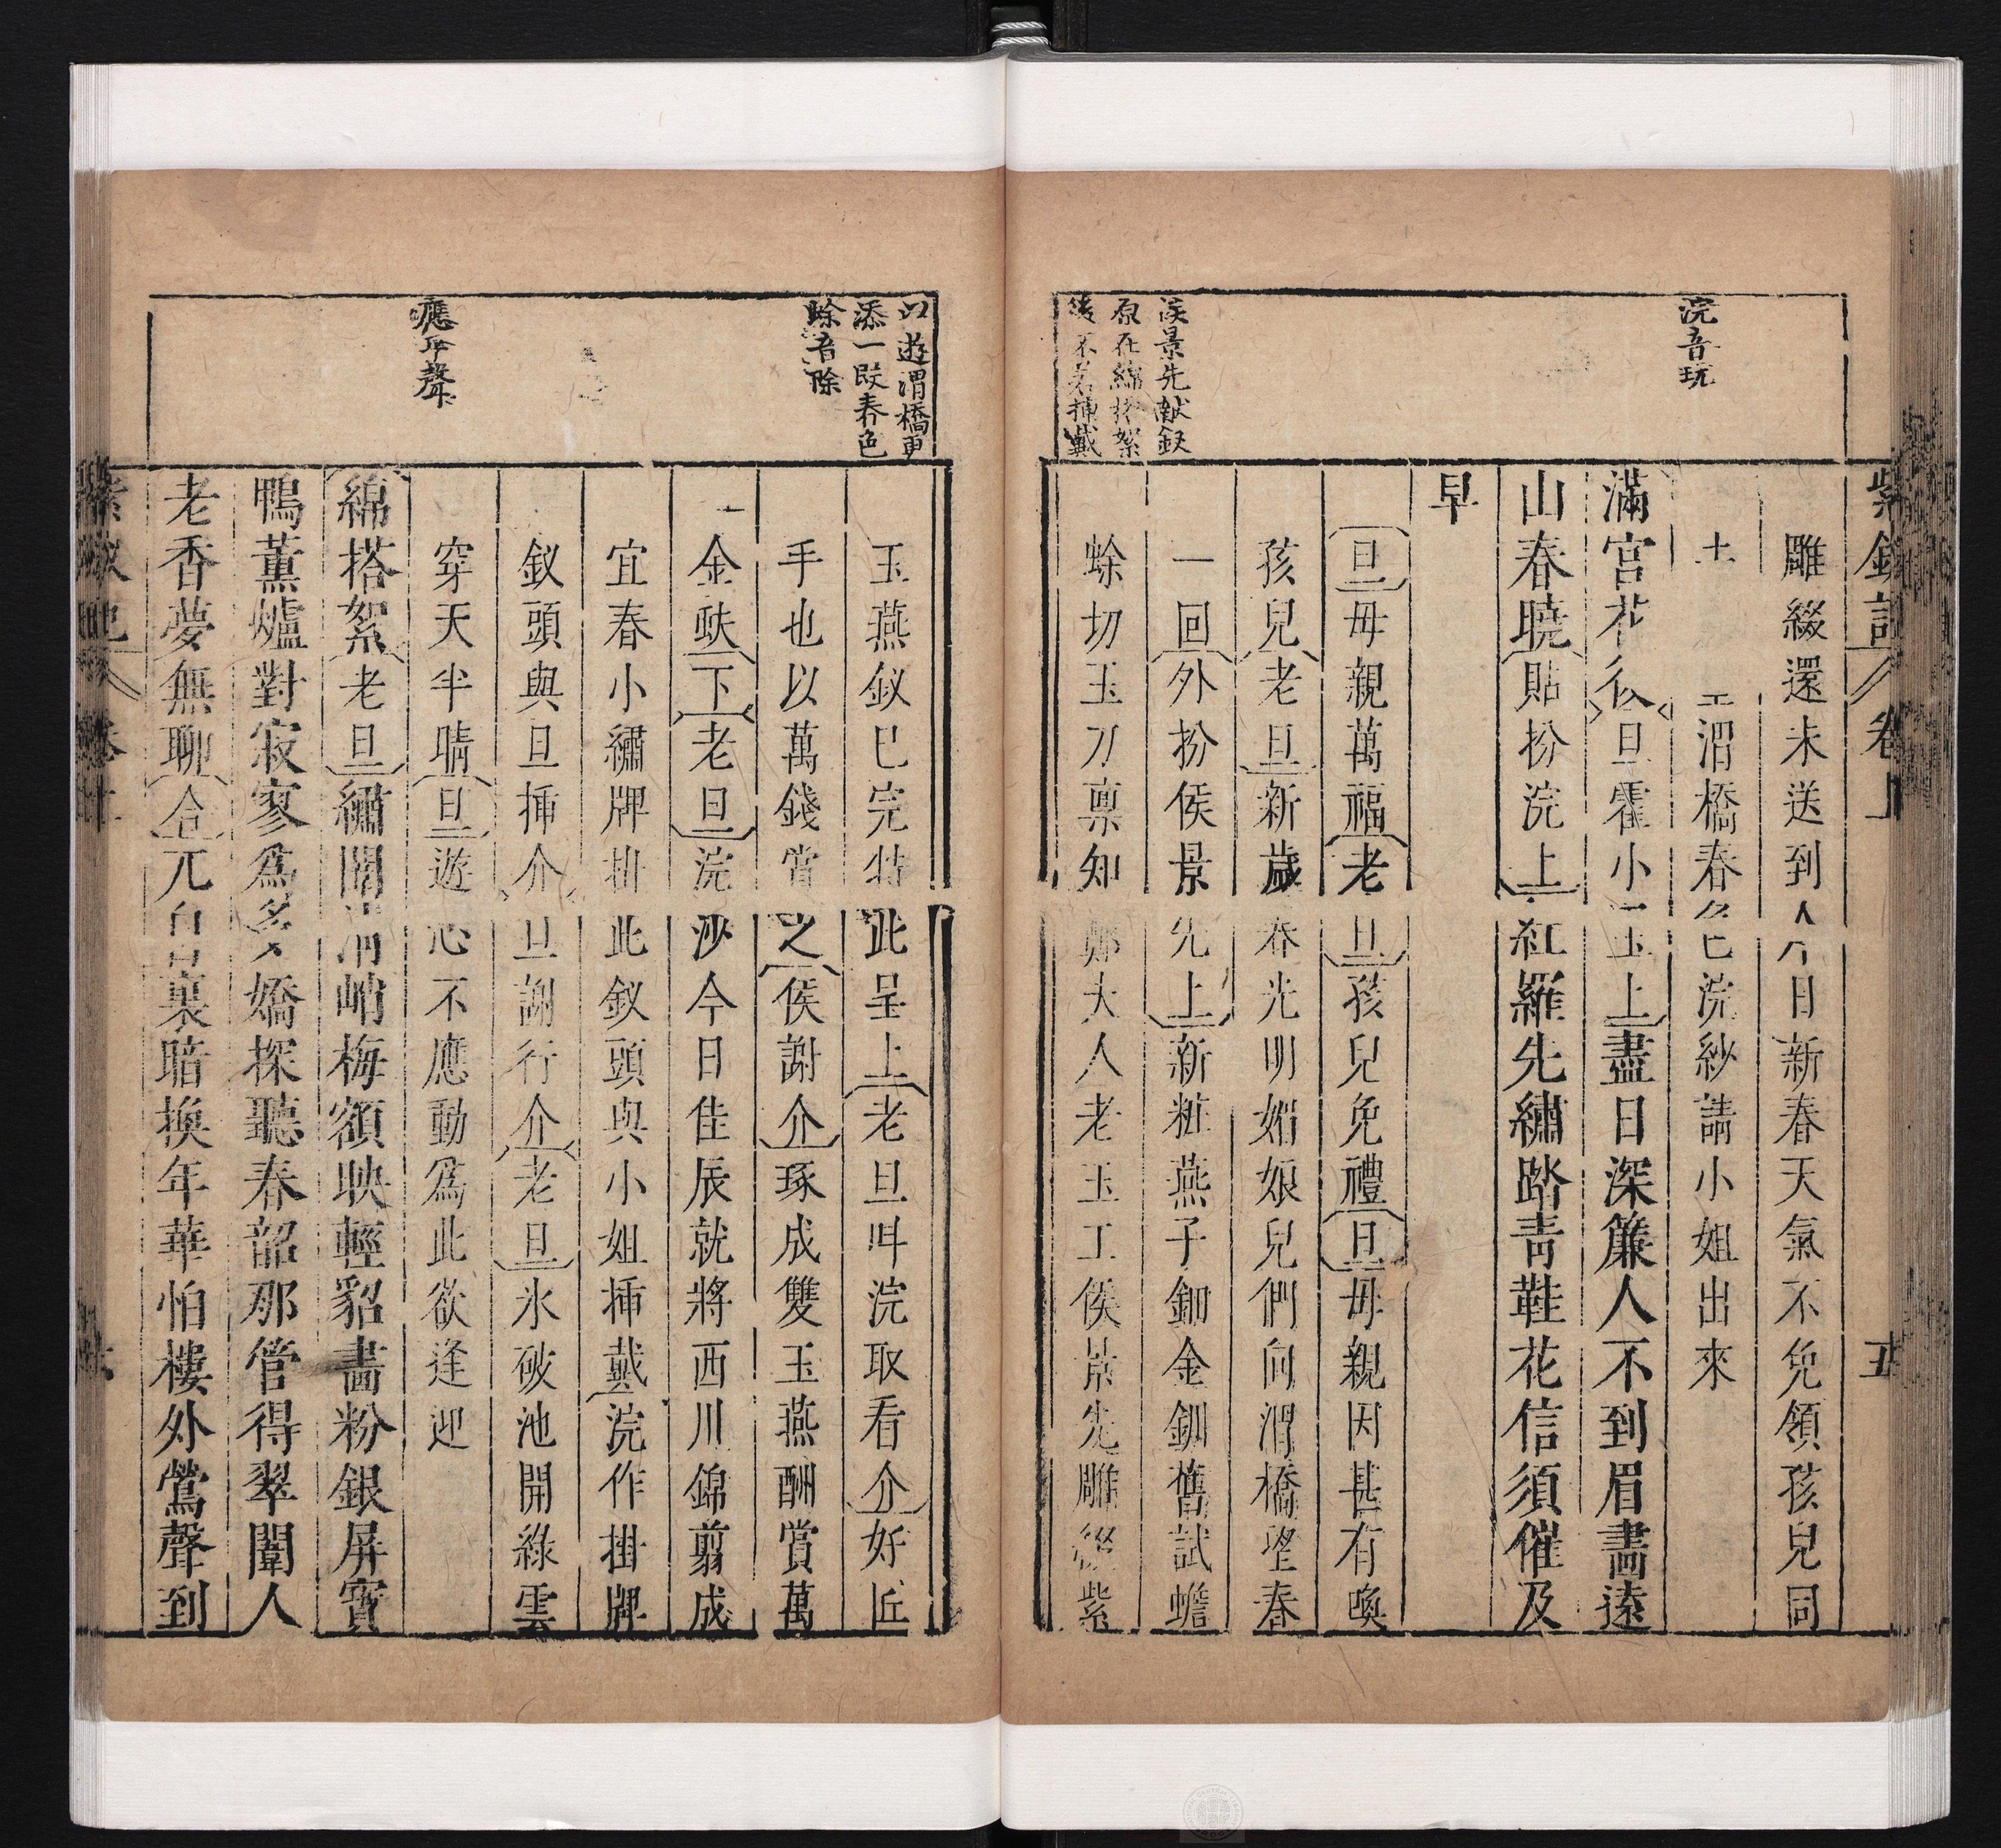 紫釵記 卷上 五
浣音玩
侯景先献釵
原在綿搭絮
後不若挿戴
雕綴還未送到今日新春天氣不免領孩兒同
渭橋春色浣紗請小姐出來
滿宮花後旦霍小玉上盡日深簾人不到眉畵遠
山春曉貼扮浣上紅羅先繡踏青鞋花信須催及
早
旦母親萬福老旦孩兒免禮旦母親因甚有喚
孩兒老旦新歲春光明媚娘兒們向渭橋望春
一回外扮侯景先上新粧燕子鈿金釧舊試蟾
蜍切玉刀禀知鄭大人老玉工侯景先雕綴紫
以遊渭橋更
添一段春色
蜍音除
應平聲
玉燕釵已完特此呈上老旦呌浣取看介好匠
手也以萬錢賞之侯謝介琢成雙玉燕酬賞萬
金蚨下老旦浣沙今日佳辰就將西川錦剪成
宜春小繡牌掛此釵頭與小姐挿戴浣作掛牌
釵頭與旦挿介旦謝行介老旦氷破池開綠雲
穿天半晴旦遊心不應動爲此欲逢迎
綿搭絮老旦繡閣清峭梅額映輕貂畵粉銀屏寳
鴨薰爐對寂寥爲多嬌探聽春韶那管得翠闈人
老香夢無聊合兀自裏暗換年華怕樓外鶯聲到